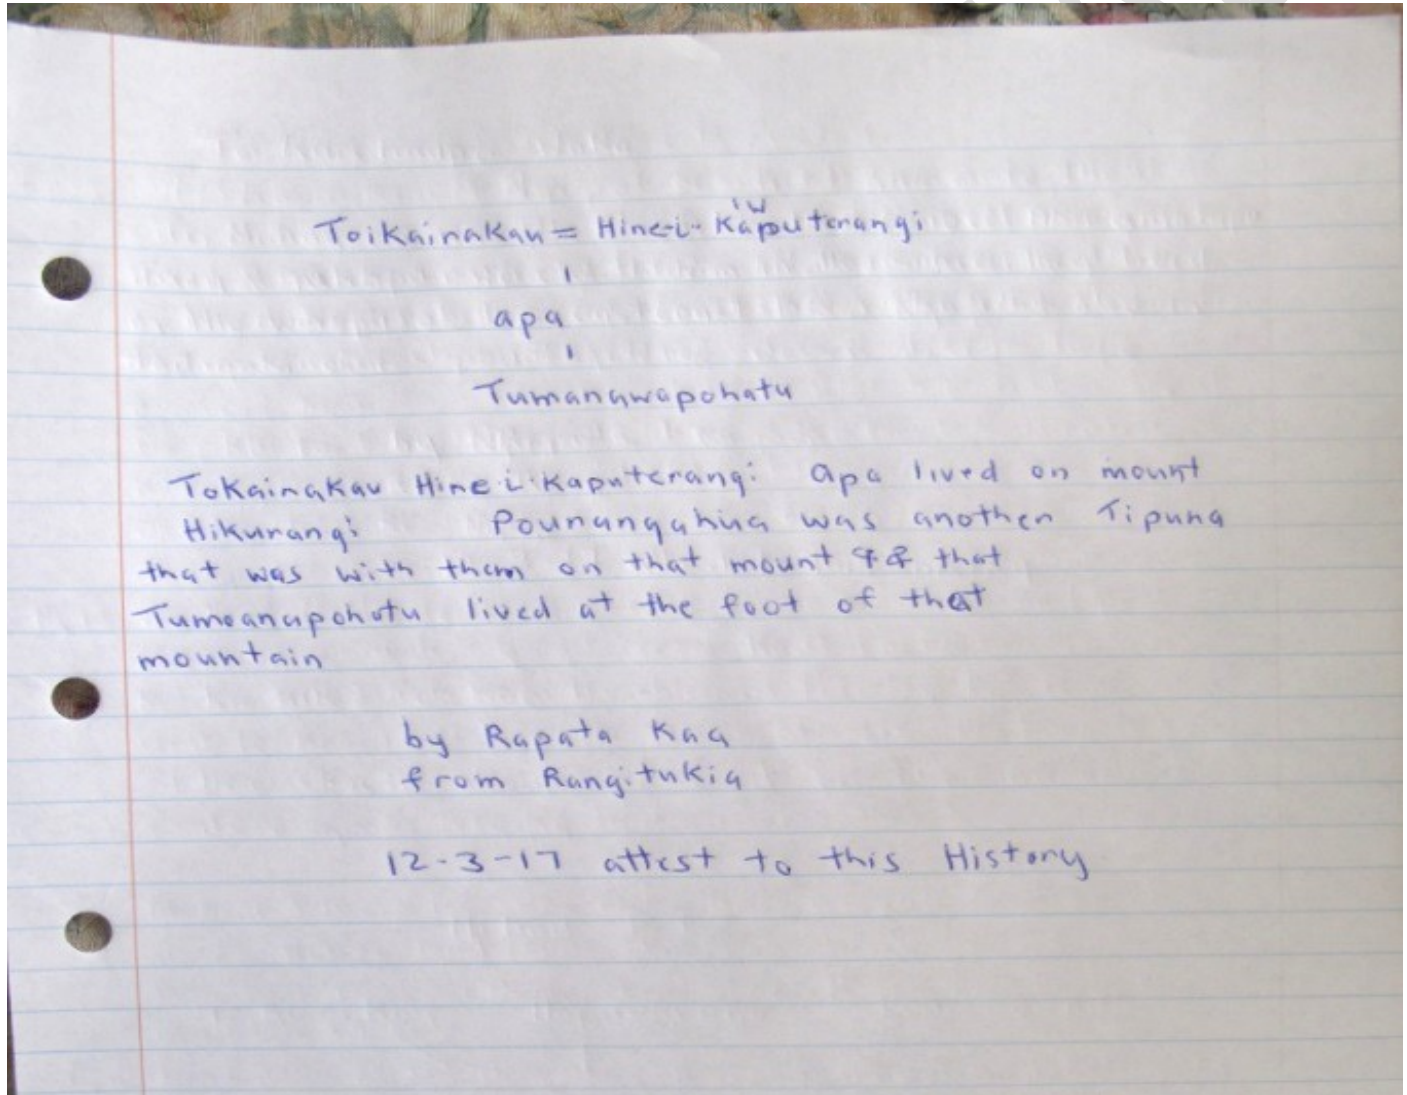 iw
Toikainakau = Hine-i-Kaputerangi
apa
Tumanawapohatu
Tokainakau Hine i Kaputerangi apa lived on mount
Hikurangi Pounangahua was another Tipuna
that was with them on that mount & that
Tumoanapohotu lived at the foot of that
mountain
by Rapata Kaa
from Rangitukia
12-3-17 attest to this History